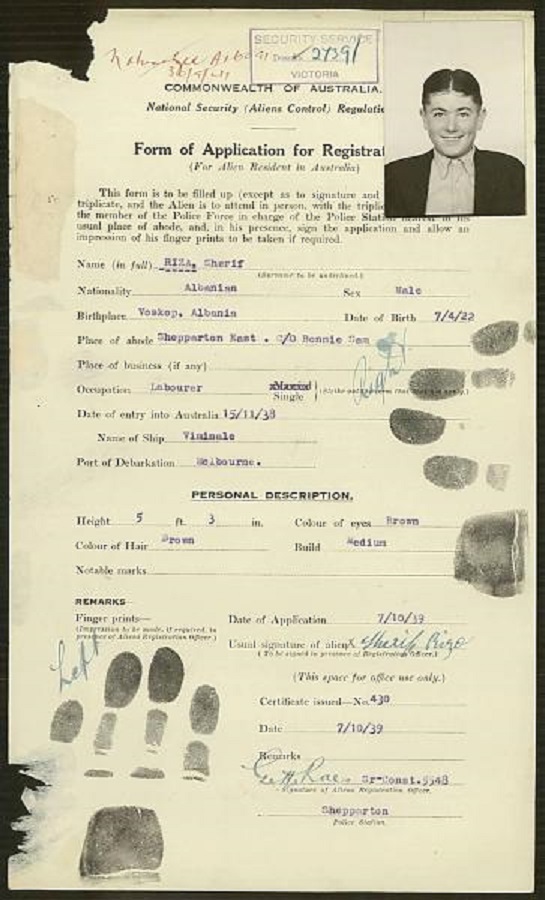 SECURITY SERVICE
VICTORIA
COMMONWEALTH OF AUSTRALIA.
National Security (Aliens Control) Regulatio
Form of Application for Registrat
(For Alien Resident in Australia)
This form is to be filled up (except as to signature and
triplicate, and the Alien is to attend in person, with the triplic
the member of the Police Force in charge of the Police Station nearest to his
usual place of abode, and, in his presence, sign the application and allow an
impression of his finger prints to be taken if required.
Name (in full) RIZA, Sherif
(Surname to be underlined.)
Nationality Albanian Sex Male
Birthplace Voskop, Albania Date of Birth 7/4/22
Place of abode Shepparton East . C/O Bonnie Sam
Right
Place of business (if any)
Occupation Labourer Married Single
Date of entry into Australia 15/11/38
Name of Ship Viminale
Port of Debarkation Melbourne.
PERSONAL DESCRIPTION.
Height 5 ft. 3 in. Colour of eyes Brown
Colour of Hair Brown Build Medium
Notable marks
REMARKS
Finger prints— Date of Application 7/10/39
(Impression to be made, if required, in
presence of Aliens Registration Officer.)
Usual signature of alien X Sherif Rizo
(To be signed in presence of Registration Officer.)
Left
(This space for office use only.)
Certificate issued—No. 430
Date 7/10/39
Remarks
Sr-Const. 5548
Signature of Aliens Registration Officer.
Shepparton
Police Station.